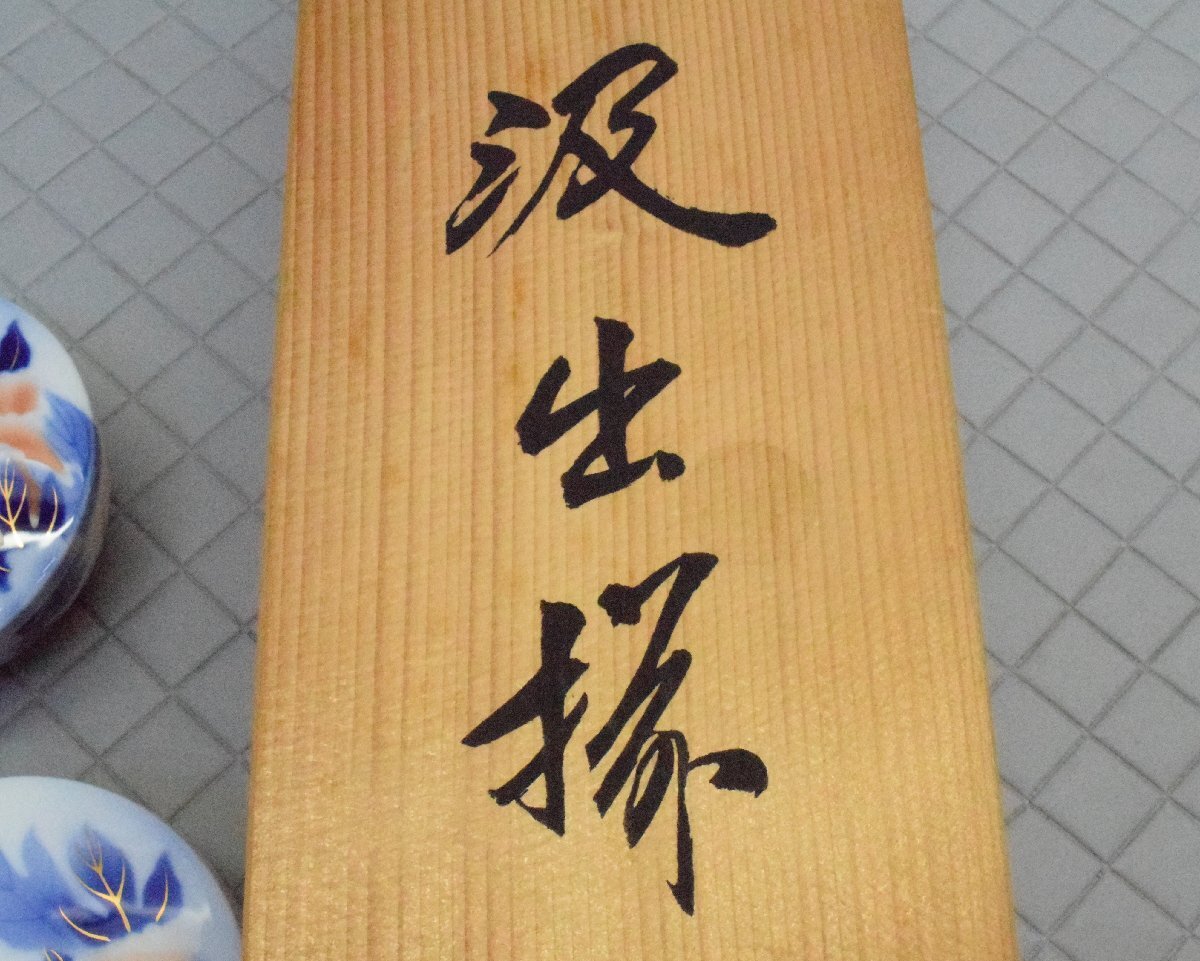 汲出揃